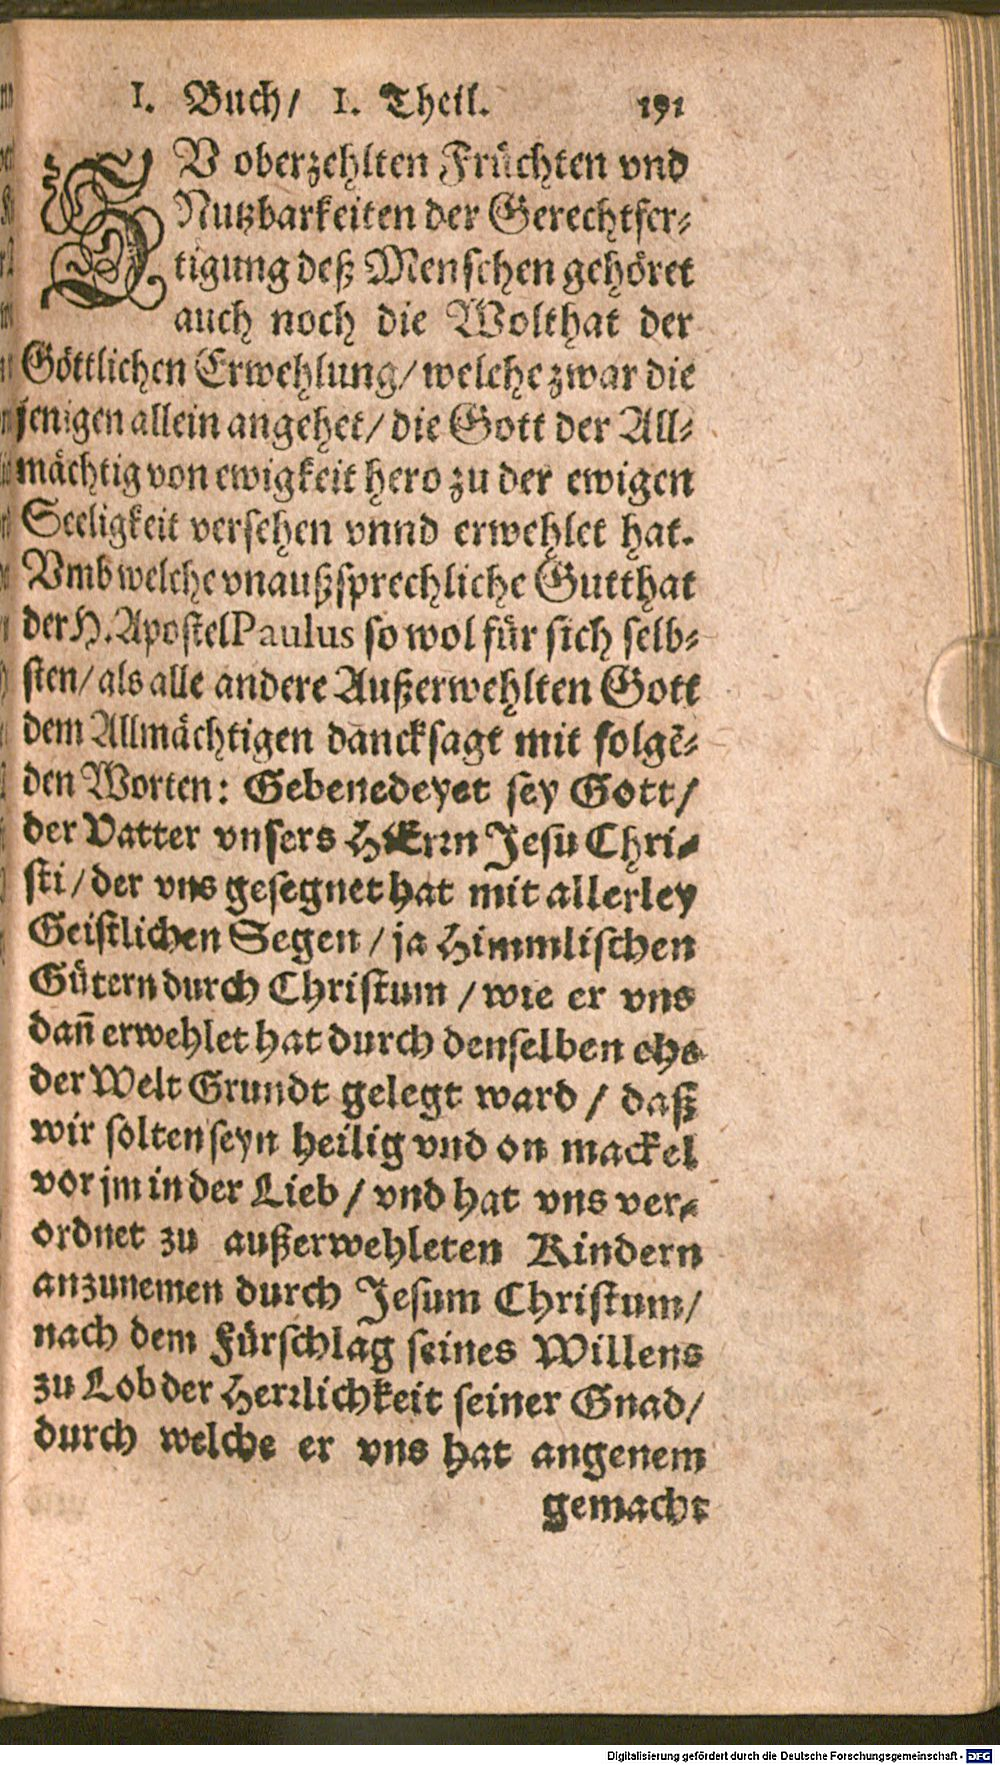 1. Buch/ 1. Theil. 191
ZV oberzehlten Früchten vnd
Nutzbarkeiten der Gerechtfer⸗
tigung deß Menschen gehöret
auch noch die Wolthat der
Göttlichen Erwehlung/ welche zwar die
jenigen allein angehet/ die Gott der All⸗
mächtig von ewigkeit hero zu der ewigen
Seeligkeit versehen vnnd erwehlet hat.
Vmb welche vnaußsprechliche Gutthat
der H. Apostel Paulus so wol für sich selb⸗
sten/ als alle andere Außerwehlten Gott
dem Allmächtigen dancksagt mit folgẽ⸗
den Worten: Gebenedeyet sey Gott/
der Vatter vnsers HErrn Jesu Chri⸗
sti/ der vns gesegnet hat mit allerley
Geistlichen Segen/ ja Himmlischen
Gütern durch Christum/ wie er vns
dañ erwehlet hat durch denselben ehe
der Welt Grundt gelegt ward/ daß
wir solten seyn heilig vnd on mackel
vor jm in der Lieb/ vnd hat vns ver⸗
ordnet zu außerwehleten Kindern
anzunemen durch Jesum Christum/
nach dem Fürschlag seines Willens
zu Lob der Herrlichkeit seiner Gnad/
durch welche er vns hat angenem
gemacht
Digitalisierung gefördert durch die Deutsche Forschungsgemeinschaft - DFG